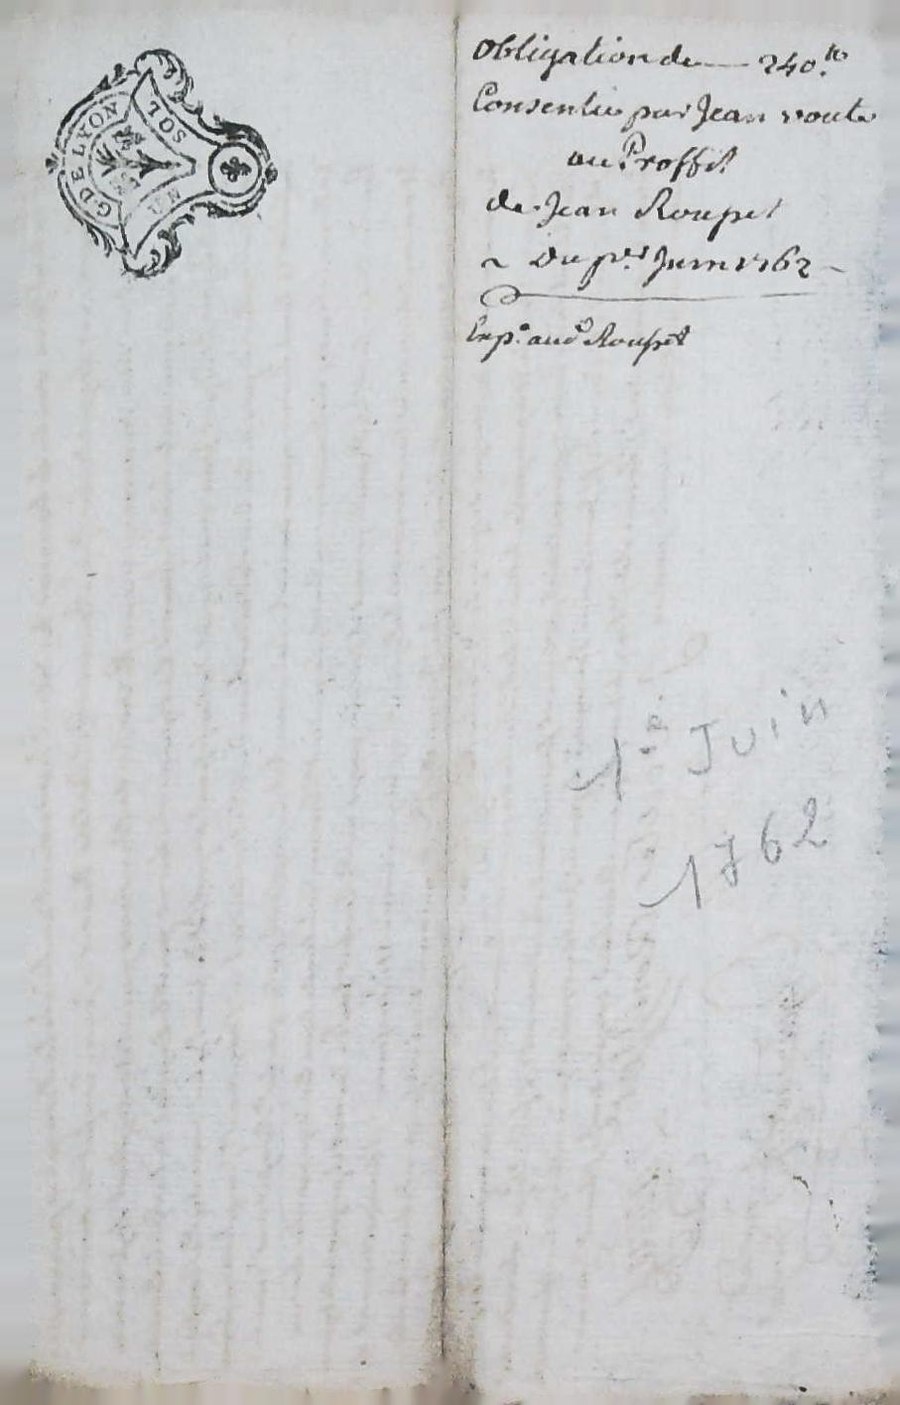 G DE LYON
UN SOL
Obligation de — 240.tt
Consentie par Jean voute
au Proffit
de Jean Roupet
Du p.er Juin 1762
Exp.e aud. Roupet
1er Juin
1762